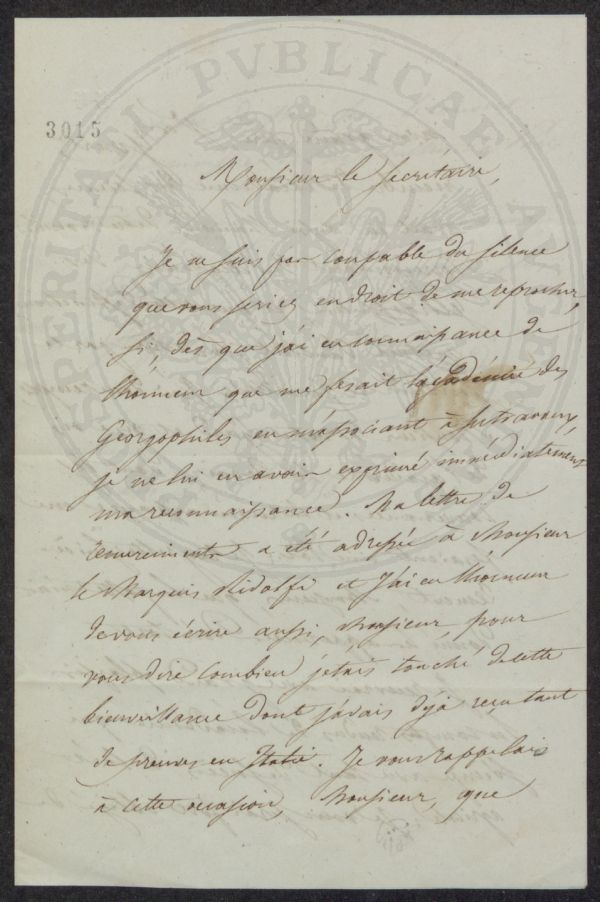 PROSPERITATI PVBLICAE AVGENDAE
3015
Monsieur le Secrétaire,
Je ne suis pas coupable du silence
que vous seriez en droit de me reprocher,
si, dès que j'ai eu connaissance de
l'honneur que me fesait l'académie des
Georgophiles en m'associant à ses travaux,
je ne lui en avais exprimé immédiatement
ma reconnaissance. Ma lettre de
remerciments a été adressée à Monsieur
le Marquis Ridolfi et j'ai eu l'honneur
de vous écrire aussi, Monsieur, pour
vous dire combien j'etais touché de cette
bienveillance dont j'avais déjà reçu tant
de preuves en Italie. Je vous rappelais
à cette occasion, Monsieur, que